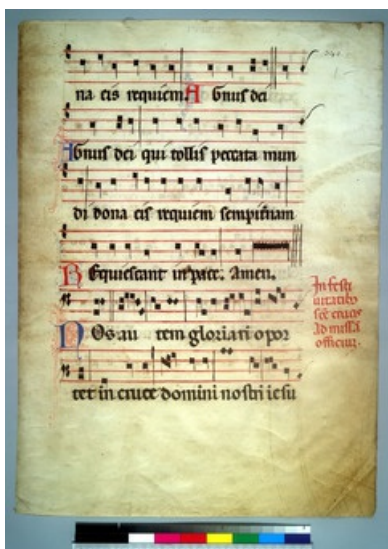 na eis requiem A Gnus dei
Agnus dei qui tollis peccata mun
di dona eis requiem sempiternam
REquiescant in pace. Amen.
In festi
uitatibus
sce crucis
Ad missā
officium.
NOs au tem gloriari opor
tet in cruce domini nostri iesu